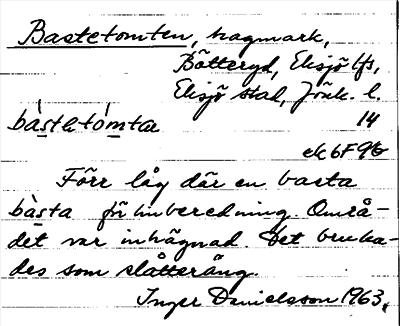 Bastetomten, hagmark,
Bätteryd, Eksjö lfs,
Eksjö stad, Jönk. l.
bàstetómten 14
ek 6F9b
Förr låg där en basta
bàsta för linberedning. Områ-
det var inhägnad. Det bruka-
des som slåtteräng.
Inger Danielsson 1963.